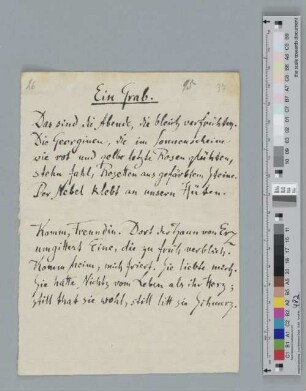 26
Ein Grab.
Das sind die Abende, die bleich verfrühten.
Die Georginen, die im Sonnenscheine
wie rot und gelbe letzte Rosen glühten,
stehn fahl, Rosetten aus gefärbtem Steine.
Der Nebel klebt an unseren Hüten.
Komm, Freundin. Dort der Zaun von Erz
umgittert Eine, die zu früh verblich.
Komm heim; mich friert. Sie liebte mich.
Sie hatte Nichts vom Leben als ihr Herz;
still that sie wohl, still litt sie Schmerz.